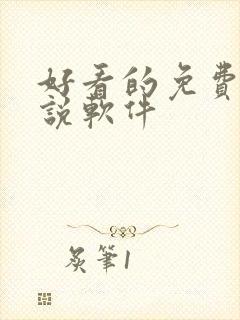 好看的免費
說軟件
炙筆1